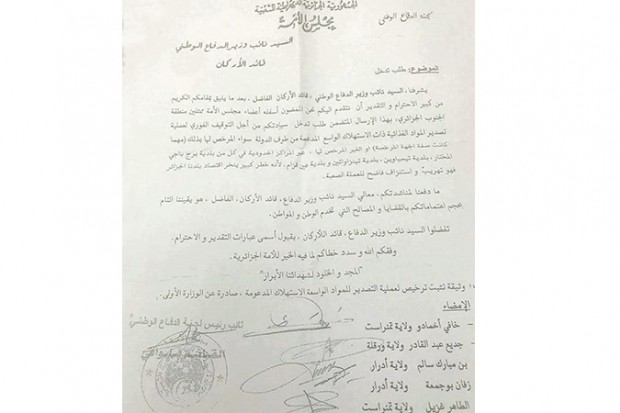 الجمهورية الجزائرية الديمقراطية الشعبية
مجلس الأمة
لجنة الدفاع الوطني
السيد نائب وزير الدفاع الوطني
قائد الأركان
الموضوع: طلب تدخل
يشرفنا، السيد نائب وزير الدفاع الوطني، قائد الأركان الفاضل، بعد ما يليق بمقامكم الكريم
من كبير الاحترام و التقدير أن نتقدم اليكم نحن الممضون أسفله أعضاء مجلس الأمة ممثلين منطقة
الجنوب الجزائري، بهذا الإرسال المتضمن طلب تدخل سيادتكم من أجل التوقيف الفوري لعملية
تصدير المواد الغذائية ذات الاستهلاك الواسع المدعمة من طرف الدولة سواء المرخص لها بذلك (مهما
كانت صفة الجهة المرخصة) أو الغير المرخص لها، عبر المراكز الحدودية في كل من بلدية برج باجي
المختار، بلدية تيمياوين، بلدية تينزاواتين و بلدية عين قزام، لأنه خطر كبير ينخر اقتصاد بلدنا الجزائر
فهو تهريب و استنزاف فاضح للعملة الصعبة.
ما دفعنا لمناشدتكم، معالي السيد نائب وزير الدفاع، قائد الأركان، الفاضل، هو يقيننا التام
بحجم اهتماماتكم بالقضايا و المصالح التي تخدم الوطن و المواطن.
تفضلوا السيد نائب وزير الدفاع، قائد الأركان، بقبول أسمى عبارات التقدير و الاحترام.
وفقكم الله و سدد خطاكم لما فيه الخير للأمة الجزائرية.
"المجد و الخلود لشهدائنا الأبرار"
وثيقة تثبت ترخيص لعملية التصدير للمواد الواسعة الاستهلاك المدعومة، صادرة عن الوزارة الأولى.
الإمضاء
نائب رئيس لجنة الدفاع الوطني
- خافي أخمادو ولاية تمنراست
- جديع عبد القادر ولاية ورقلة
بن مبارك سالم ولاية أدرار
زفان بوجمعة ولاية أدرار
الطاهر غزيل ولاية تمنراست